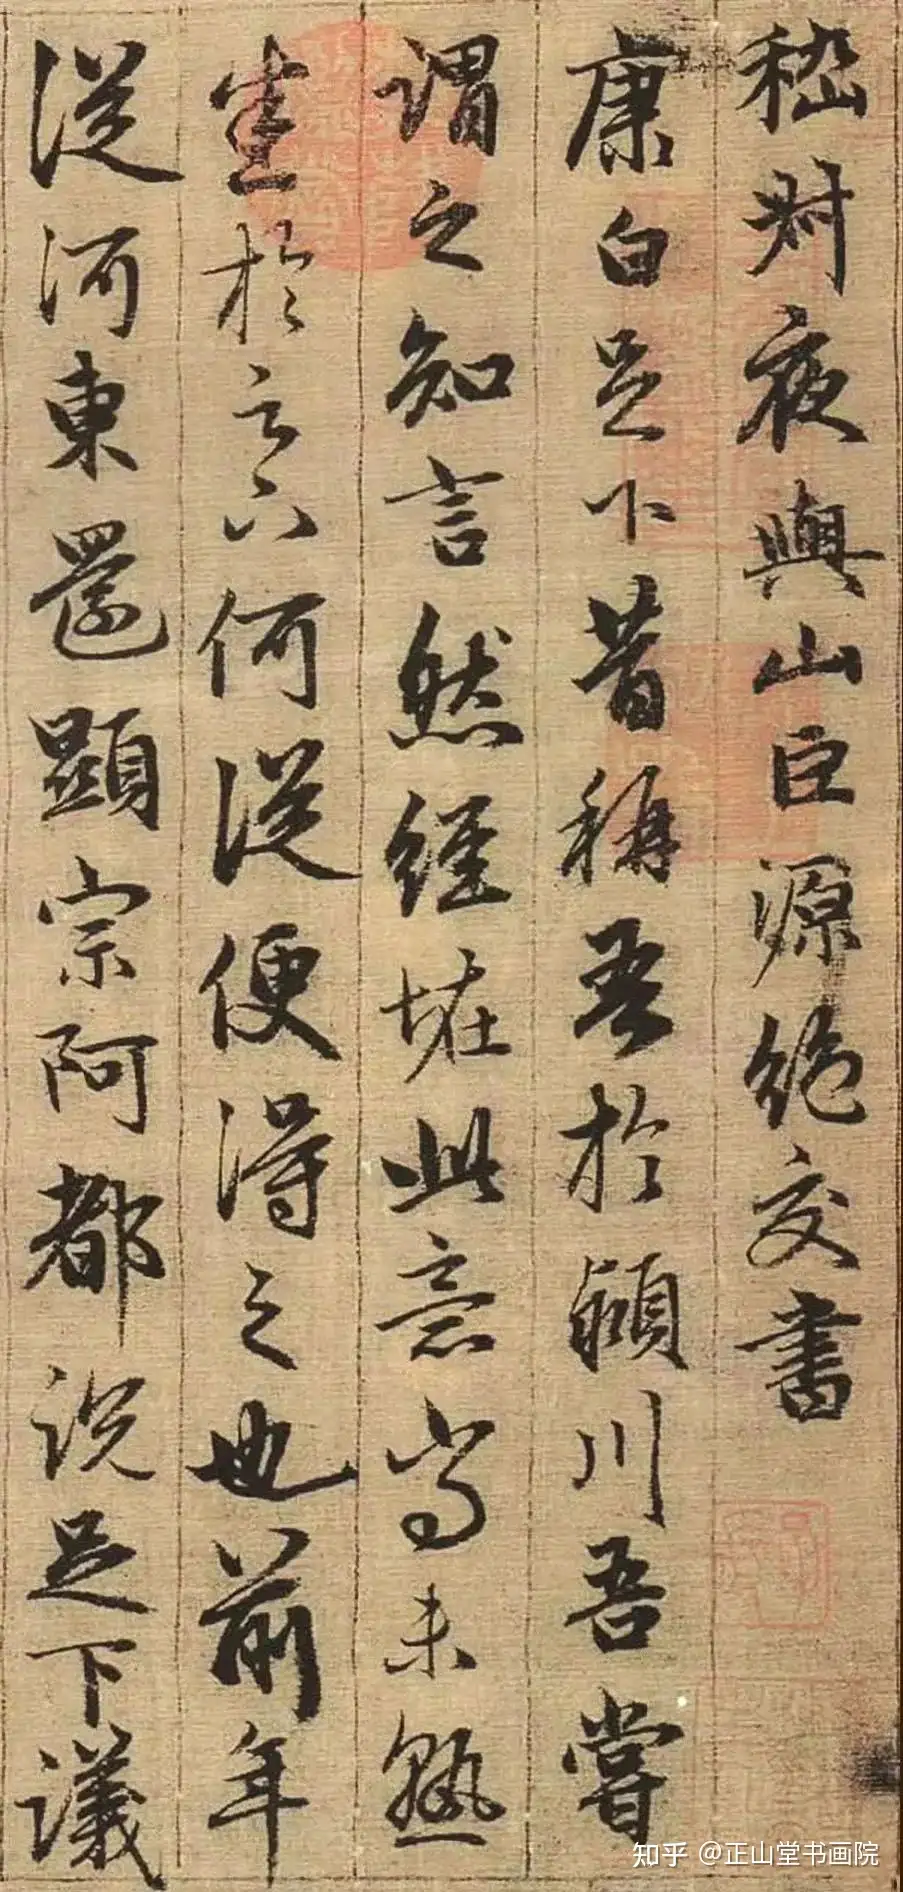 嵇叔夜與山巨源絕交書
康白足下昔稱吾於潁川吾嘗
謂之知言然經恠此意尚未熟
悉於足下何從便得之也前年
從河東還顯宗阿都說足下議
知乎 @正山堂书画院